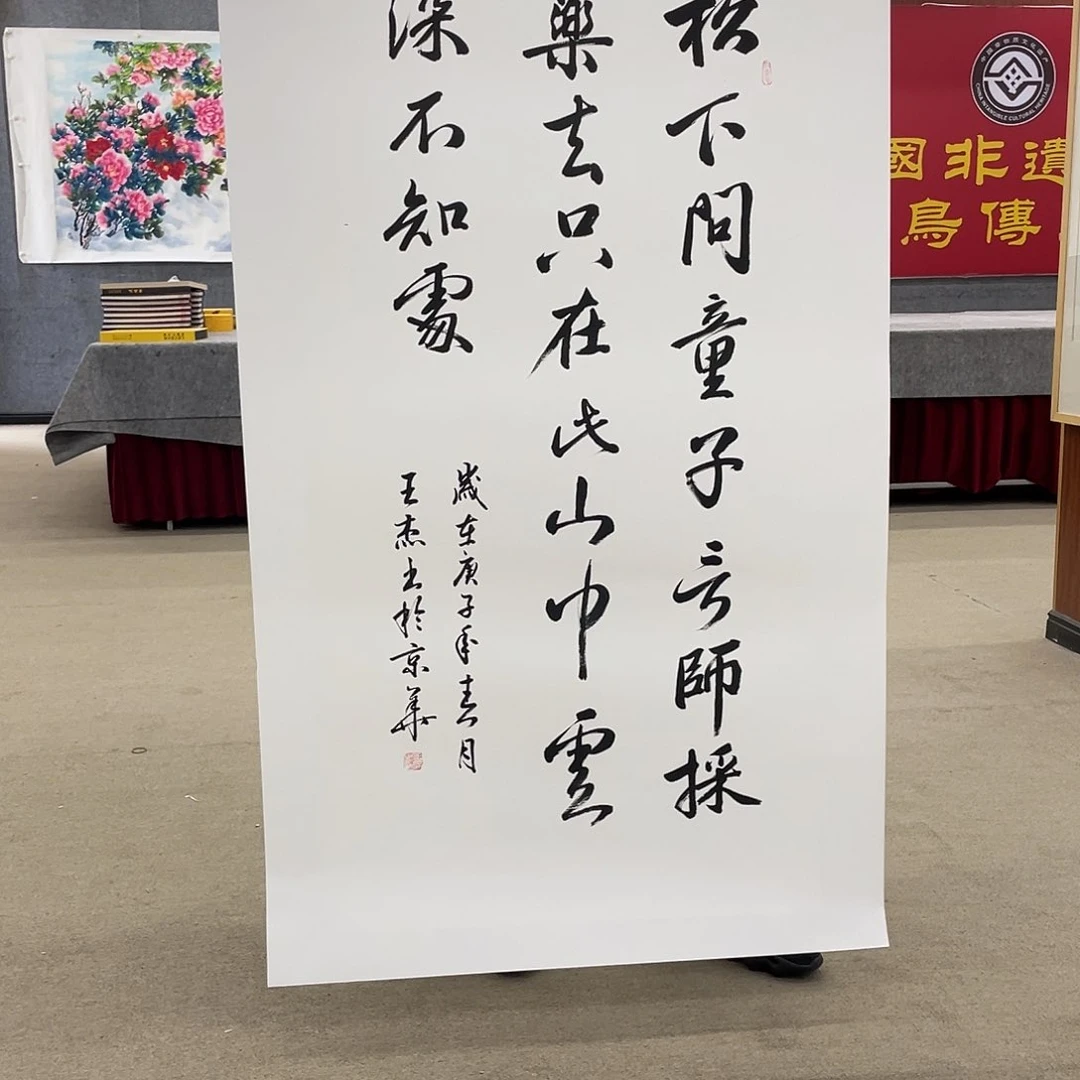 松下問童子言師採
藥去只在此山中雲
深不知處
歲在庚子年春月
王杰書於京華
CHINA INTANGIBLE CULTURAL HERITAGE
國非遺
鳥傳